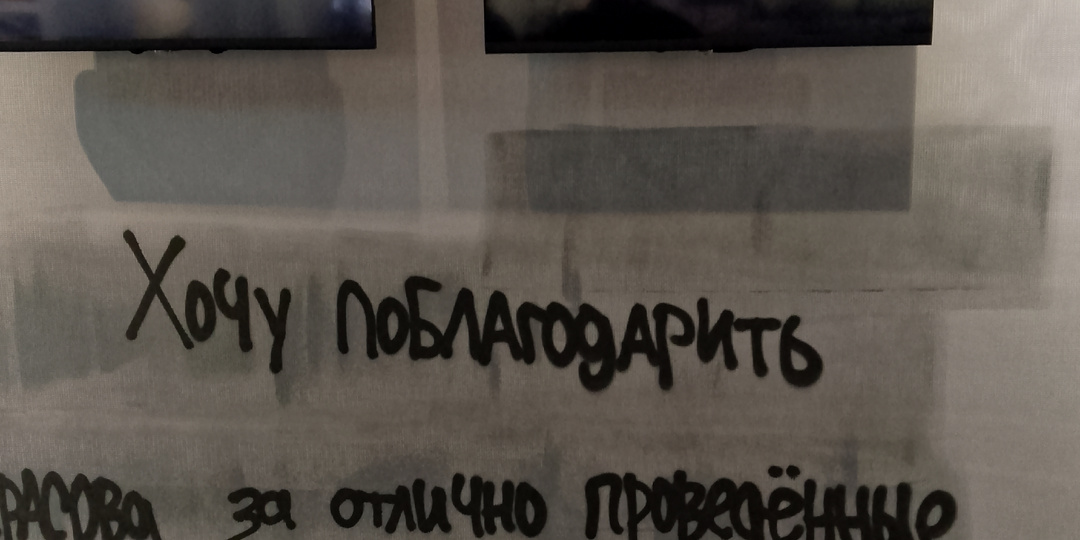 Хочу поблагодарить
за отлично проведённые